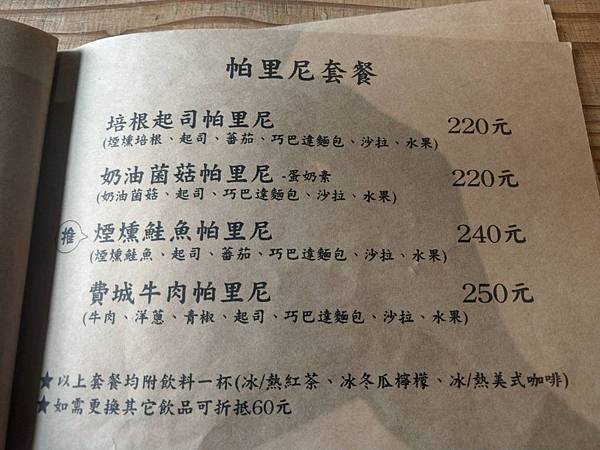 帕里尼套餐
培根起司帕里尼 220元
(煙燻培根、起司、蕃茄、巧巴達麵包、沙拉、水果)
奶油菌菇帕里尼 -蛋奶素 220元
(奶油菌菇、起司、巧巴達麵包、沙拉、水果)
推 煙燻鮭魚帕里尼 240元
(煙燻鮭魚、起司、蕃茄、巧巴達麵包、沙拉、水果)
費城牛肉帕里尼 250元
(牛肉、洋蔥、青椒、起司、巧巴達麵包、沙拉、水果)
★以上套餐均附飲料一杯(冰/熱紅茶、冰冬瓜檸檬、冰/熱美式咖啡)
★如需更換其它飲品可折抵60元